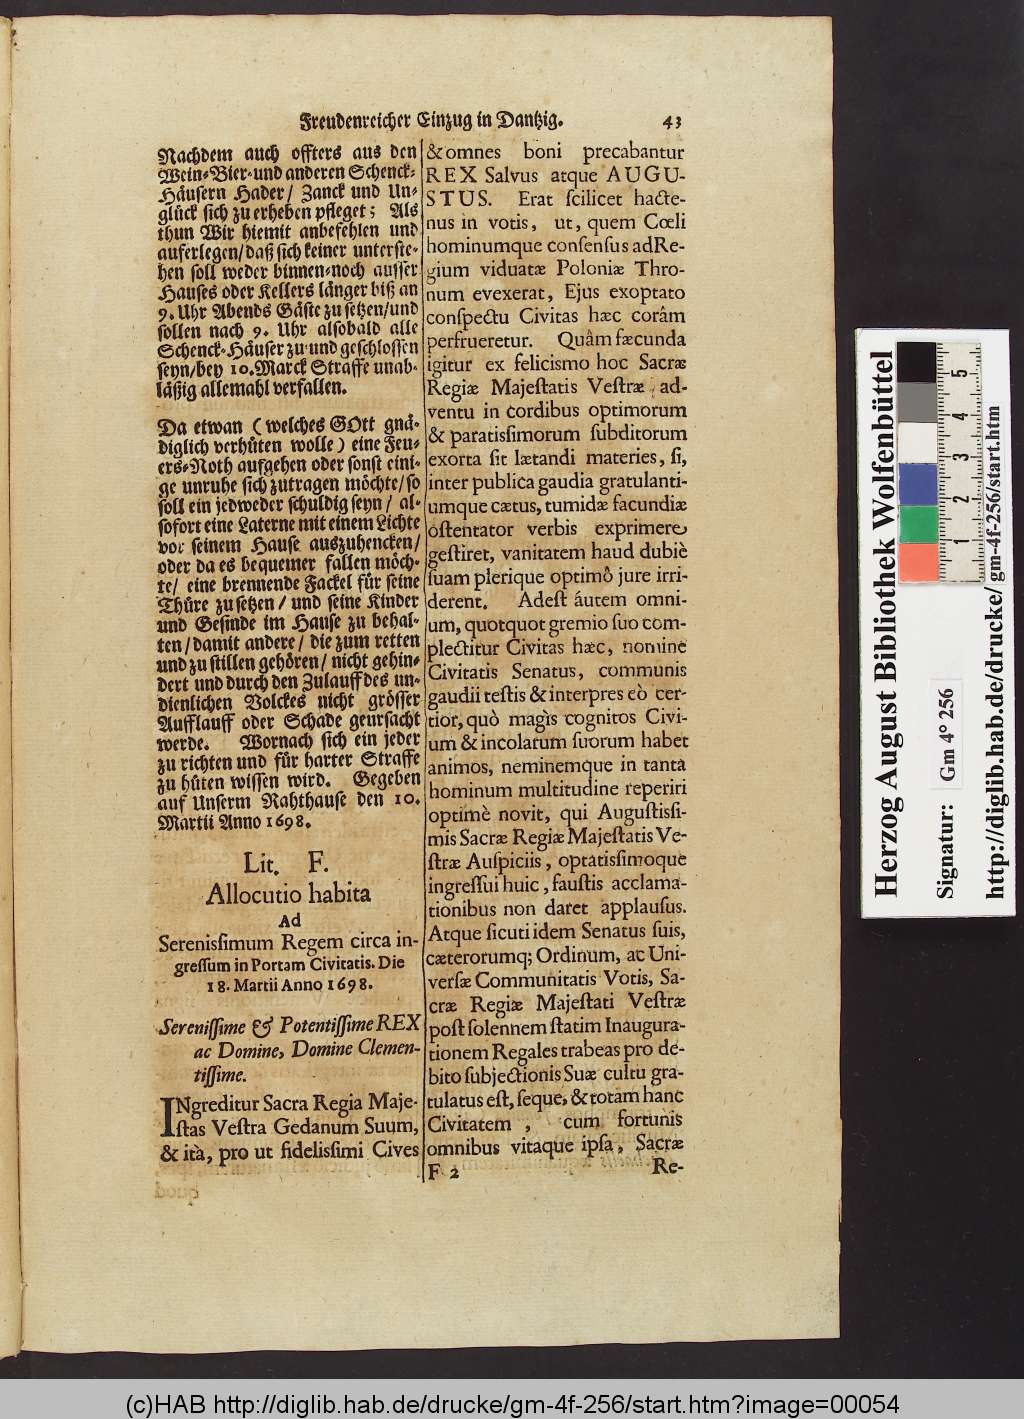 Freudenreicher Einzug in Dantzig. 43
Nachdem auch offters aus den
Wein-Bier-und anderen Schenck-
Häusern Hader/ Zanck und Un-
glück sich zu erheben pfleget; Als
thun Wir hiemit anbefehlen und
auferlegen/daß sich keiner unterste-
hen soll weder binnen-noch ausser
Hauses oder Kellers länger biß an
9. Uhr Abends Gäste zu setzen/und
sollen nach 9. Uhr alsobald alle
Schenck-Häuser zu-und geschlossen
seyn/bey 10. Marck Straffe unab-
läßig allemahl verfallen.
Da etwan ( welches GOtt gnä-
diglich verhüten wolle ) eine Feu-
ers-Noth aufgehen oder sonst eini-
ge unruhe sich zutragen möchte/ so
soll ein jedweder schuldig seyn / al-
sofort eine Laterne mit einem Lichte
vor seinem Hause auszuhencken/
oder da es bequemer fallen möch-
te/ eine brennende Fackel für seine
Thüre zu setzen / und seine Kinder
und Gesinde im Hause zu behal-
ten/damit andere / die zum retten
und zu stillen gehören/ nicht gehin-
dert und durch den Zulauff des un-
dienlichen Volckes nicht grösser
Aufflauff oder Schade geursacht
werde. Wornach sich ein jeder
zu richten und für harter Straffe
zu hüten wissen wird. Gegeben
auf Unserm Rahthause den 10.
Martii Anno 1698.
Lit. F.
Allocutio habita
Ad
Serenissimum Regem circa in-
gressum in Portam Civitatis. Die
18. Martii Anno 1698.
Serenissime & Potentissime REX
ac Domine, Domine Clemen-
tissime.
INgreditur Sacra Regia Maje-
stas Vestra Gedanum Suum,
& ità, pro ut fidelissimi Cives
& omnes boni precabantur
REX Salvus atque AUGU-
STUS. Erat scilicet hacte-
nus in votis, ut, quem Cœli
hominumque consensus ad Re-
gium viduatæ Poloniæ Thro-
num evexerat, Ejus exoptato
conspectu Civitas hæc corâm
perfrueretur. Quâm fæcunda
igitur ex felicismo hoc Sacræ
Regiæ Majestatis Vestræ ad-
ventu in cordibus optimorum
& paratissimorum subditorum
exorta sit lætandi materies, si,
inter publica gaudia gratulanti-
umque cætus, tumidæ facundiæ
ostentator verbis exprimere
gestiret, vanitatem haud dubiè
suam plerique optimô jure irri-
derent. Adest áutem omni-
um, quotquot gremio suo com-
plectitur Civitas hæc, nomine
Civitatis Senatus, communis
gaudii testis & interpres eò cer-
tior, quò magìs cognitos Civi-
um & incolarum suorum habet
animos, neminemque in tanta
hominum multitudine reperiri
optimè novit, qui Augustissi-
mis Sacræ Regiæ Majestatis Ve-
stræ Auspiciis, optatissimoque
ingressui huic, faustis acclama-
tionibus non daret applausus.
Atque sicuti idem Senatus suis,
cæterorumq; Ordinum, ac Uni-
versæ Communitatis Votis, Sa-
cræ Regiæ Majestati Vestræ
post solennem statim Inaugura-
tionem Regales trabeas pro de-
bito subjectionis Suæ cultu gra-
tulatus est, seque, & totam hanc
Civitatem, cum fortunis
omnibus vitaque ipsa, Sacræ
F 2 Re-
Herzog August Bibliothek Wolfenbüttel
Signatur: Gm 4° 256
http://diglib.hab.de/drucke/gm-4f-256/start.htm
1 2 3 4 5
(c)HAB http://diglib.hab.de/drucke/gm-4f-256/start.htm?image=00054